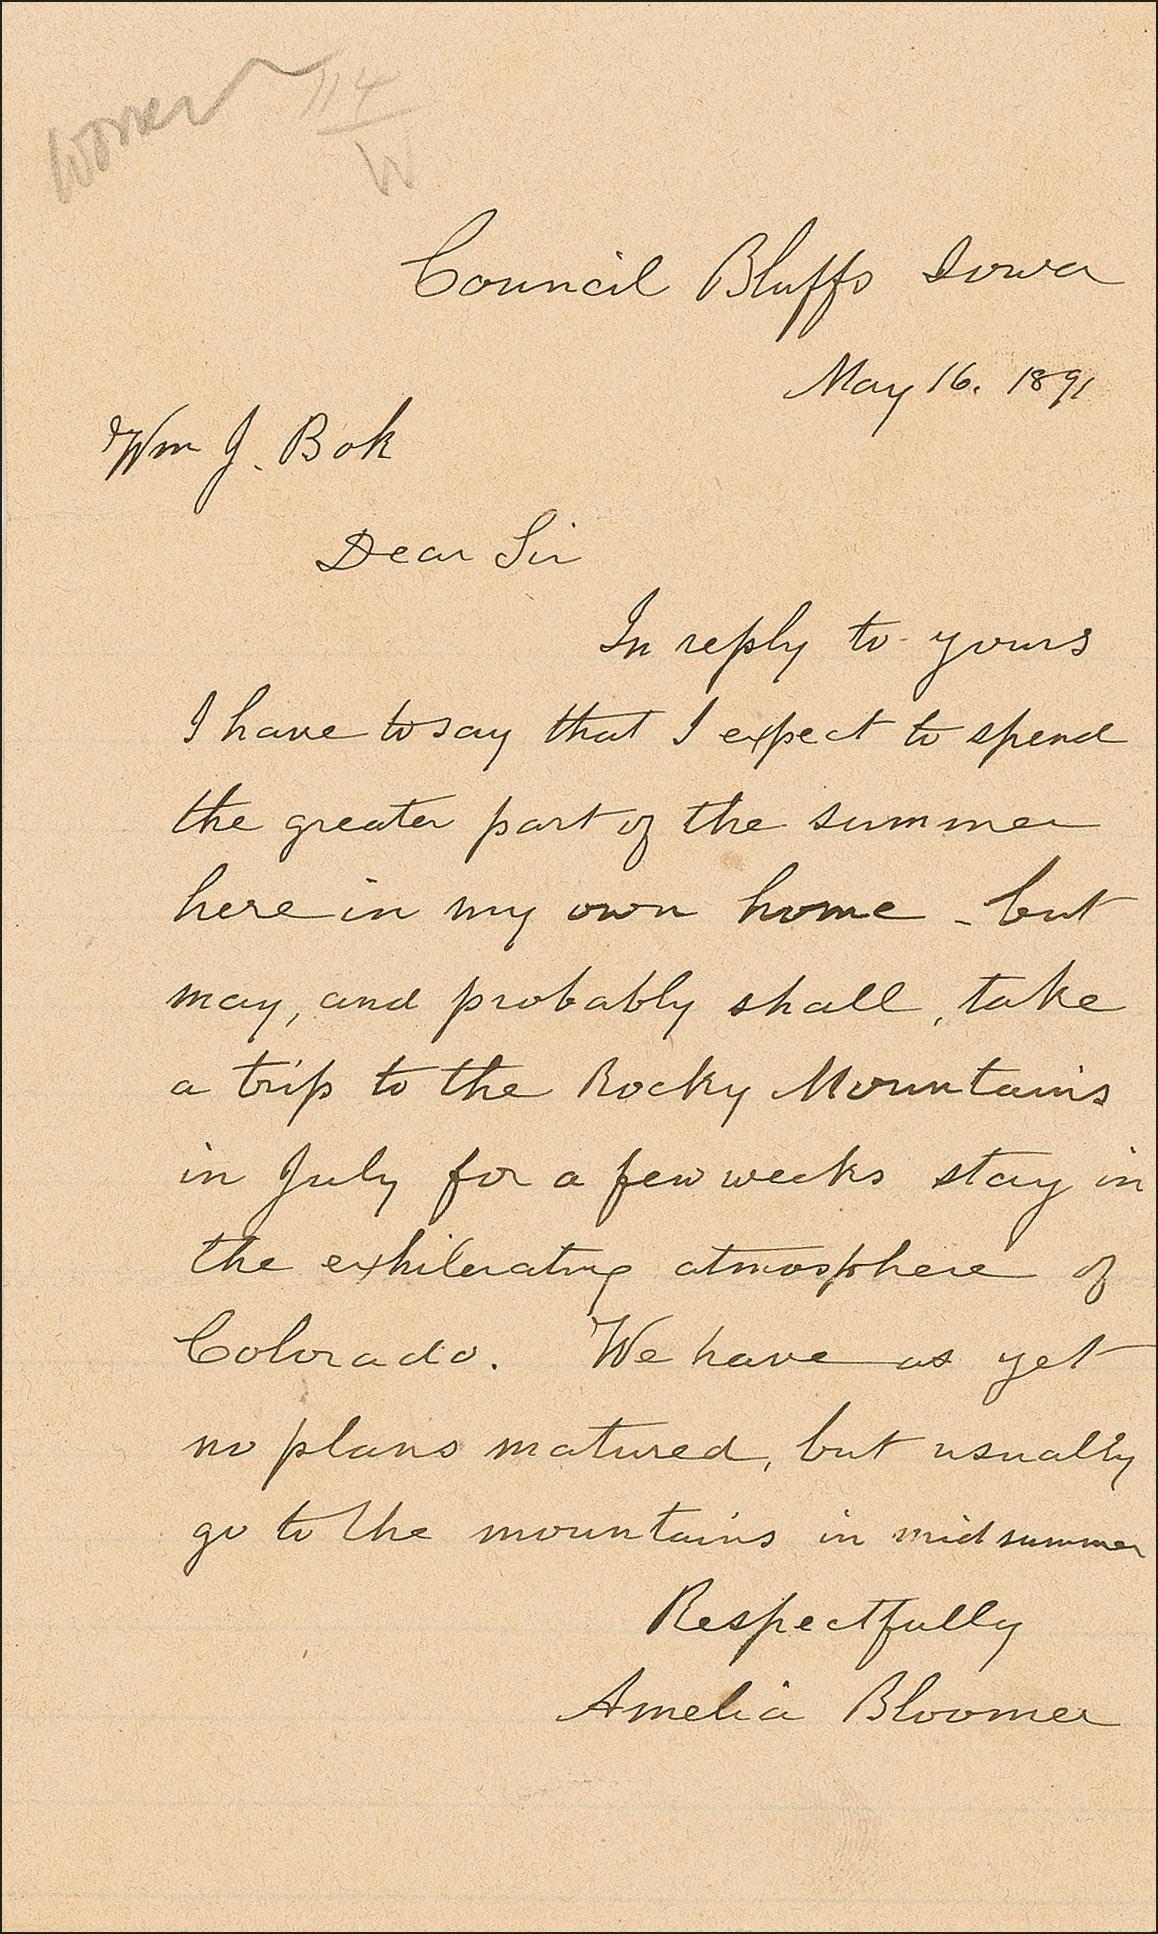 Women 114
W
Council Bluffs Iowa
May 16. 1891
Wm J. Bok
Dear Sir
In reply to yours
I have to say that I expect to spend
the greater part of the summer
here in my own home - but
may, and probably shall, take
a trip to the Rocky Mountains
in July for a few weeks stay in
the exhilerating atmosphere of
Colorado. We have as yet
no plans matured, but usually
go to the mountains in midsummer
Respectfully
Amelia Bloomer